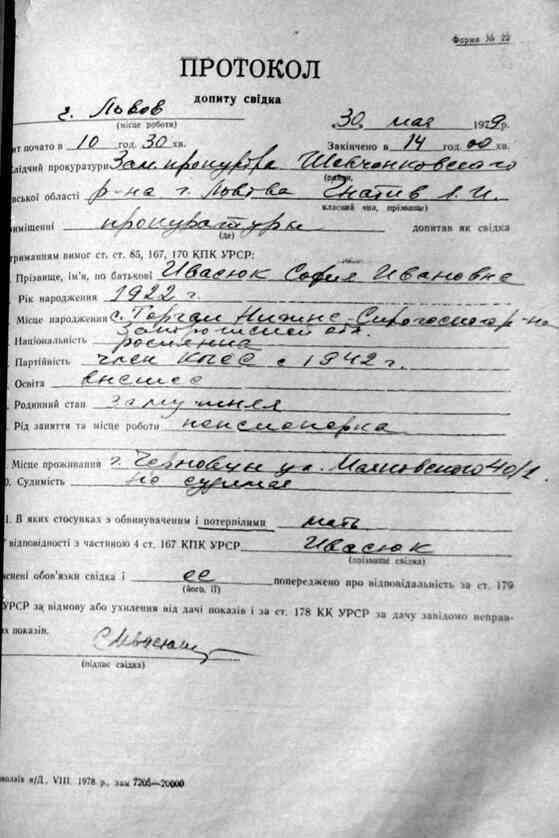 Форма № 22
ПРОТОКОЛ
допиту свідка
г. Львов
(місце роботи)
„30 мая 1979 р.
ит почато в 10 год. 30 хв. Закінчено в 14 год. 00 хв.
лідчий прокуратури Зам прокурора Шевченковского
(район,
вської області р-на г. Львова Гнатив Л. И.
класний чин, прізвище)
иміщенні прокуратуры допитав як свідка
(де)
триманням вимог ст. ст. 85, 167, 170 КПК УРСР:
Прізвище, ім'я, по батькові Ивасюк София Ивановна
Рік народження 1922 г.
Місце народження с. Нижне-Сирогосского р-на
Запорожской обл.
Національність росиянка
Партійність член КПСС с 1942 г.
Освіта высшее
Родинний стан замужняя
Рід заняття та місце роботи пенсионерка
Місце проживання г. Черновцы ул. Маяковского 40/1
0. Судимість не судимая
1. В яких стосунках з обвинуваченим і потерпілими мать
відповідності з частиною 4 ст. 167 КПК УРСР Ивасюк
(прізвище свідка)
снені обов'язки свідка і ее попереджено про відповідальність за ст. 179
(його, її)
УРСР за відмову або ухилення від дачі показів і за ст. 178 КК УРСР за дачу завідомо неправ-
их показів.
(підпис свідка)
н/Д, VIII. 1978 р., зам 7205—20000